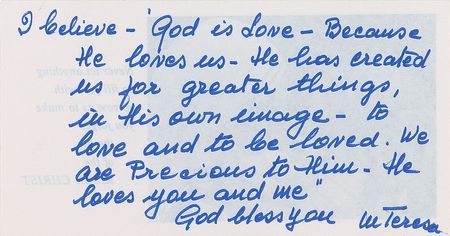 I believe - "God is Love - Because
He loves us - He has created
us for greater things,
in His own image - to
love and to be loved. We
are Precious to Him - He
loves you and me"
God bless you M Teresa